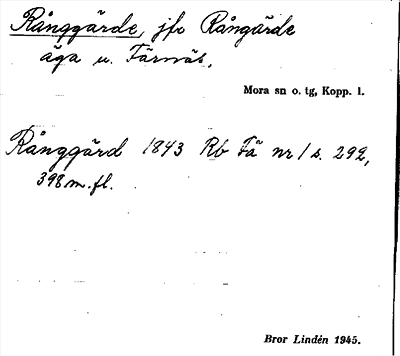 Rånggärde, jfr Rångärde
äga u. Färnäs.
Mora sn o. tg, Kopp. l.
Rånggärd 1843 Rb Fä nr 1 s. 292,
398 m. fl.
Bror Lindén 1945.